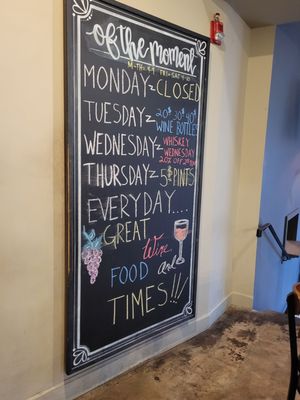 of the moment
MONDAY~CLOSED
TUESDAY~ 20$ 30$ 40$
WINE BOTTLES
WEDNESDAY~ WHISKEY
WEDNESDAY
20% OFF
THURSDAY~ 5$ PINTS
EVERYDAY....
GREAT
Wine
FOOD and
TIMES!!!